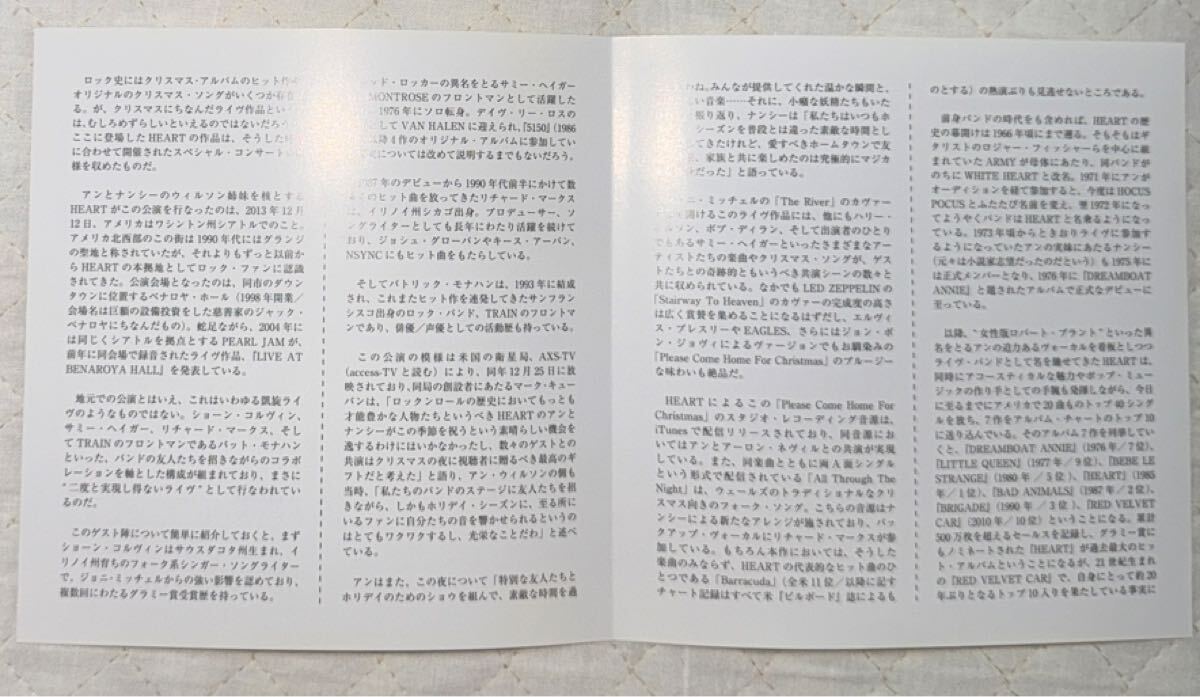 ロック史にはクリスマス・アルバムのヒット作や
オリジナルのクリスマス・ソングがいくつか存在
る。が、クリスマスにちなんだライヴ作品とい
は、むしろめずらしいといえるのではないだろう
ここに登場したHEARTの作品は、そうした時
に合わせて開催されたスペシャル・コンサート
様を収めたものだ。
アンとナンシーのウィルソン姉妹を核とする
HEARTがこの公演を行なったのは、2013年12月
12日、アメリカはワシントン州シアトルでのこと。
アメリカ北西部のこの街は1990年代にはグランジ
の聖地と称されていたが、それよりもずっと以前か
らHEARTの本拠地としてロック・ファンに認識
されてきた。公演会場となったのは、同市のダウン
タウンに位置するベナロヤ・ホール（1998年開業／
会場名は巨額の設備投資をした慈善家のジャック・
ベナロヤにちなんだもの）。蛇足ながら、2004年に
は同じくシアトルを拠点とするPEARL JAMが、
前年に同会場で録音されたライヴ作品、『LIVE AT
BENAROYA HALL』を発表している。
地元での公演とはいえ、これはいわゆる凱旋ライ
ヴのようなものではない。ショーン・コルヴィン、
サミー・ヘイガー、リチャード・マークス、そし
てTRAINのフロントマンであるパット・モナハン
といった、バンドの友人たちを招きながらのコラボ
レーションを軸とした構成が組まれており、まさに
“二度と実現し得ないライヴ”として行なわれてい
るのだ。
このゲスト陣について簡単に紹介しておくと、まず
ショーン・コルヴィンはサウスダコタ州生まれ、イ
リノイ州育ちのフォーク系シンガー・ソングライター
で、ジョニ・ミッチェルからの強い影響を認めており、
複数回にわたるグラミー賞受賞歴を持っている。
ッド・ロッカーの異名をとるサミー・ヘイガー
MONTROSEのフロントマンとして活躍した
1976年にソロ転身。デイヴ・リー・ロスの
してVAN HALENに迎えられ、『5150』（1986
以降4作のオリジナル・アルバムに参加してい
については改めて説明するまでもないだろう。
1987年のデビューから1990年代前半にかけて数
のヒット曲を放ってきたリチャード・マークス
は、イリノイ州シカゴ出身。プロデューサー、ソ
ングライターとしても長年にわたり活躍を続けて
おり、ジョシュ・グローバンやキース・アーバン、
NSYNCにもヒット曲をもたらしている。
そしてパトリック・モナハンは、1993年に結成
され、これまたヒット作を連発してきたサンフラン
シスコ出身のロック・バンド、TRAINのフロントマ
ンであり、俳優／声優としての活動歴も持っている。
この公演の模様は米国の衛星局、AXS-TV
（access-TVと読む）により、同年12月25日に放
映されており、同局の創設者にあたるマーク・キュー
バンは、「ロックンロールの歴史においてもっとも
才能豊かな人物たちというべきHEARTのアンと
ナンシーがこの季節を祝うという素晴らしい機会を
逸するわけにはいかなかったし、数々のゲストとの
共演はクリスマスの夜に視聴者に贈るべき最高のギ
フトだと考えた」と語り、アン・ウィルソンの側も
当時、「私たちのバンドのステージに友人たちを招
きながら、しかもホリデイ・シーズンに、至る所に
いるファンに自分たちの音を響かせられるというの
はとてもワクワクするし、光栄なことだわ」と述べ
ている。
アンはまた、この夜について「特別な友人たちと
ホリデイのためのショウを組んで、素敵な時間を過
わね。みんなが提供してくれた温かな瞬間と、
い音楽……それに、小癪な妖精たちもいた
振り返り、ナンシーは「私たちはいつもホ
シーズンを普段とは違った素敵な時間とし
してきたけれど、愛すべきホームタウンで友
、家族と共に楽しめたのは究極的にマジカ
だった」と語っている。
ニ・ミッチェルの「The River」のカヴァー
開けるこのライヴ作品には、他にもハリー・
ルソン、ボブ・ディラン、そして出演者のひとり
でもあるサミー・ヘイガーといったさまざまなアー
ティストたちの楽曲やクリスマス・ソングが、ゲス
トたちとの奇跡的ともいうべき共演シーンの数々と
共に収められている。なかでもLED ZEPPELINの
「Stairway To Heaven」のカヴァーの完成度の高さ
は広く賞賛を集めることになるはずだし、エルヴィ
ス・プレスリーやEAGLES、さらにはジョン・ボ
ン・ジョヴィによるヴァージョンでもお馴染みの
「Please Come Home For Christmas」のブルージー
な味わいも絶品だ。
HEARTによるこの「Please Come Home For
Christmas」のスタジオ・レコーディング音源は、
iTunesで配信リリースされており、同音源にお
いてはアンとアーロン・ネヴィルとの共演が実現
している。また、同楽曲とともに両A面シングル
という形式で配信されている「All Through The
Night」は、ウェールズのトラディショナルなクリ
スマス向きのフォーク・ソング。こちらの音源はナ
ンシーによる新たなアレンジが施されており、バッ
クアップ・ヴォーカルにリチャード・マークスが参
加している。もちろん本作においては、そうした
楽曲のみならず、HEARTの代表的なヒット曲のひ
とつである「Barracuda」（全米11位／以降に記す
チャート記録はすべて米『ビルボード』誌によるも
のとする）の熱演ぶりも見逃せないところである。
前身バンドの時代をも含めれば、HEARTの歴
史の幕開けは1966年頃にまで遡る。そもそもはギ
タリストのロジャー・フィッシャーらを中心に組
まれていたARMYが母体にあたり、同バンドが
のちにWHITE HEARTと改名。1971年にアンが
オーディションを経て参加すると、今度はHOCUS
POCUSとふたたび名前を変え、翌1972年になっ
てようやくバンドはHEARTと名乗るようになっ
ている。1973年頃からときおりライヴに参加す
るようになっていたアンの実妹にあたるナンシー
（元々は小説家志望だったのだという）も1975年に
は正式メンバーとなり、1976年に『DREAMBOAT
ANNIE』と題されたアルバムで正式なデビューに
至っている。
以降、“女性版ロバート・プラント”といった異
名をとるアンの迫力あるヴォーカルを看板としつつ
ライヴ・バンドとして名を馳せてきたHEARTは、
同時にアコースティカルな魅力やポップ・ミュー
ジックの作り手としての手腕も発揮しながら、今日
に至るまでにアメリカで20曲ものトップ40シング
ルを放ち、7作をアルバム・チャートのトップ10
に送り込んでいる。そのアルバム7作を列挙してい
くと、『DREAMBOAT ANNIE』（1976年／7位）、
『LITTLE QUEEN』（1977年／9位）、『BEBE LE
STRANGE』（1980年／5位）、『HEART』（1985
年／1位）、『BAD ANIMALS』（1987年／2位）、
『BRIGADE』（1990年／3位）、『RED VELVET
CAR』（2010年／10位）ということになる。累計
500万枚を超えるセールスを記録し、グラミー賞に
もノミネートされた『HEART』が過去最大のヒッ
ト・アルバムということになるが、21世紀生まれ
の『RED VELVET CAR』で、自身にとって約20
年ぶりとなるトップ10入りを果たしている事実に